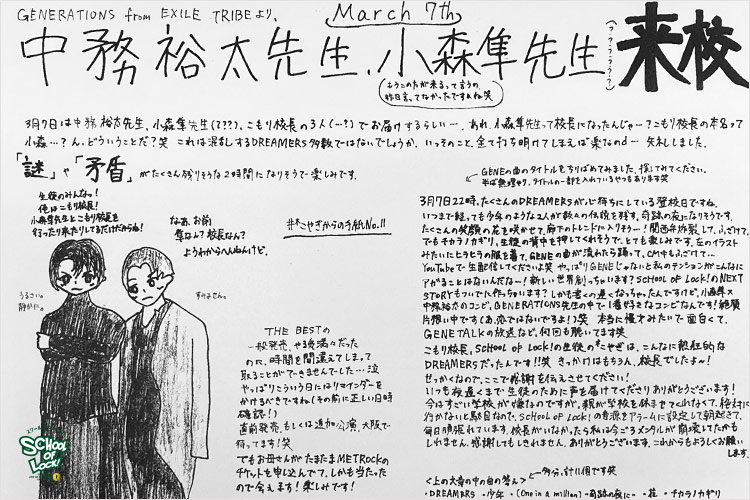 GENERATIONS from EXILE TRIBEより、
March 7th
中務裕太先生、小森隼先生
来校
もうこの方が来るって言うの、
昨日言ってなかったですかね笑
3月7日は中務裕太先生、小森隼先生(???)、こもり校長の3人(…?)でお届けするらしい…。あれ、小森隼先生って校長になったんじゃ…?こもり校長の本名って
小森…?ん、どういうことだ?笑 これは混乱するDREAMERS多数ではないでしょうか。いっそのこと、全て打ち明けてしまえば楽なのd… 失礼しました。
「謎」や「矛盾」がたくさん残りそうな2時間になりそうで楽しみです。
GENEの曲のタイトルをちりばめてみました。探してみてください。
半ば無理やり、タイトルの一部を入れているやつもあります笑
生徒のみんなっ!
俺はこもり校長!
小森隼先生とこもり校長を
行ったり来たりしてるだけだからね!
なあ、お前
隼なん?校長なん?
ようわからへんねんけど。
#こやぎからの手紙No.11
うるさい。
静かに。
すみません。
THE BESTの
一般発売、やる気満々だった
のに、時間を間違えてしまって
取ることができませんでした…泣
やっぱりこういう日にはリマインダーを
かけるべきですね(その前に正しい日時
確認!)
直前発売、もしくは追加公演、大阪で
待ってます!笑
でもお母さんがたまたまMETROCKの
チケットを申し込んでて、しかも当たった
ので会えます!楽しみです!
3月7日22時、たくさんのDREAMERSが心待ちにしている登校日ですね。
いつまで経っても少年のような2人が数々の伝説を残す、奇跡の夜になりそうです。
たくさんの笑顔の花を咲かせて、廊下のトレンドに入りそう…!関西弁炸裂して、ふざけて、
でもチカラノカギリ、生徒の背中を押してくれそうで、とても楽しみです。左のイラスト
みたいにヒラヒラの服を着て、GENEの曲が流れたら踊って、CM中もふざけて…
YouTubeで生配信してくださいよ笑 やっぱりGENEじゃないと私のテンションがこんなに
アガることはないんだな…!新しい世界創っちゃいます?SCHOOL OF LOCK!のNEXT
STORYもついでに作っちゃいます?しかも書くの遅くなっちゃったんですけど、小森隼×
中務裕太のコンビ、GENERATIONS先生の中で1番好きなコンビなんです!絶賛
片想い中です(あ、恋ではないですよ!)笑 本当に漫才みたいで面白くて、
GENETALKの放送など、何回も聴いてます笑
こもり校長、SCHOOL OF LOCK!の生徒のこやぎは、こんなに熱狂的な
DREAMERSだったんです!!笑 きっかけはもちろん、校長でしたよ…!
せっかくなので、ここで感謝を伝えさせてください!
いつも夜遅くまで生徒のために声を届けてくださりありがとうございます!
今はすごい学校が嫌なのですが、親が学校を休ませてくれなくて、絶対に
行かないと駄目なので、SCHOOL OF LOCK!の音源をアラームに設定して朝起きて、
毎日頑張れています。校長がいなかったら私は今ごろメンタルが崩壊してたかも
しれません。感謝してもしきれません。ありがとうございます。これからもよろしくお願い
します。
<上の文章の中の曲の答え>
多分、計11個です笑
・DREAMERS ・少年 ・(One in a million) -奇跡の夜に- ・花 ・チカラノカギリ
SCHOOL
OF
LOCK!